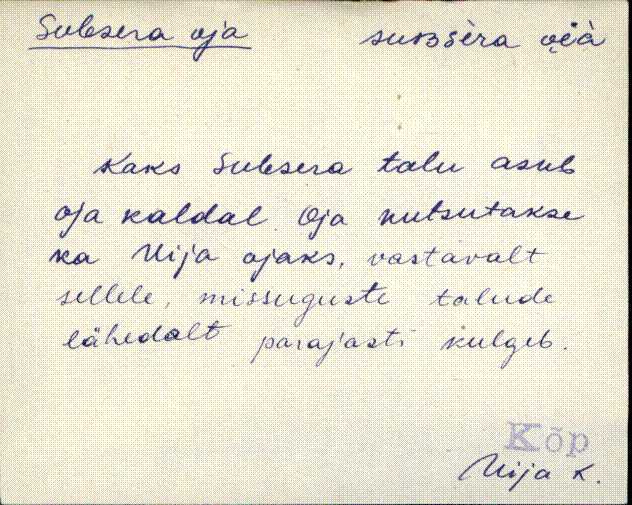 Subsera oja
suʙsèra o̭i̭à
Kaks Subsera talu asub
oja kaldal. Oja kutsutakse
ka Uija ojaks, vastavalt
sellele, missuguste talude
lähedalt parajasti kulgeb.
Kõp
Uija k.